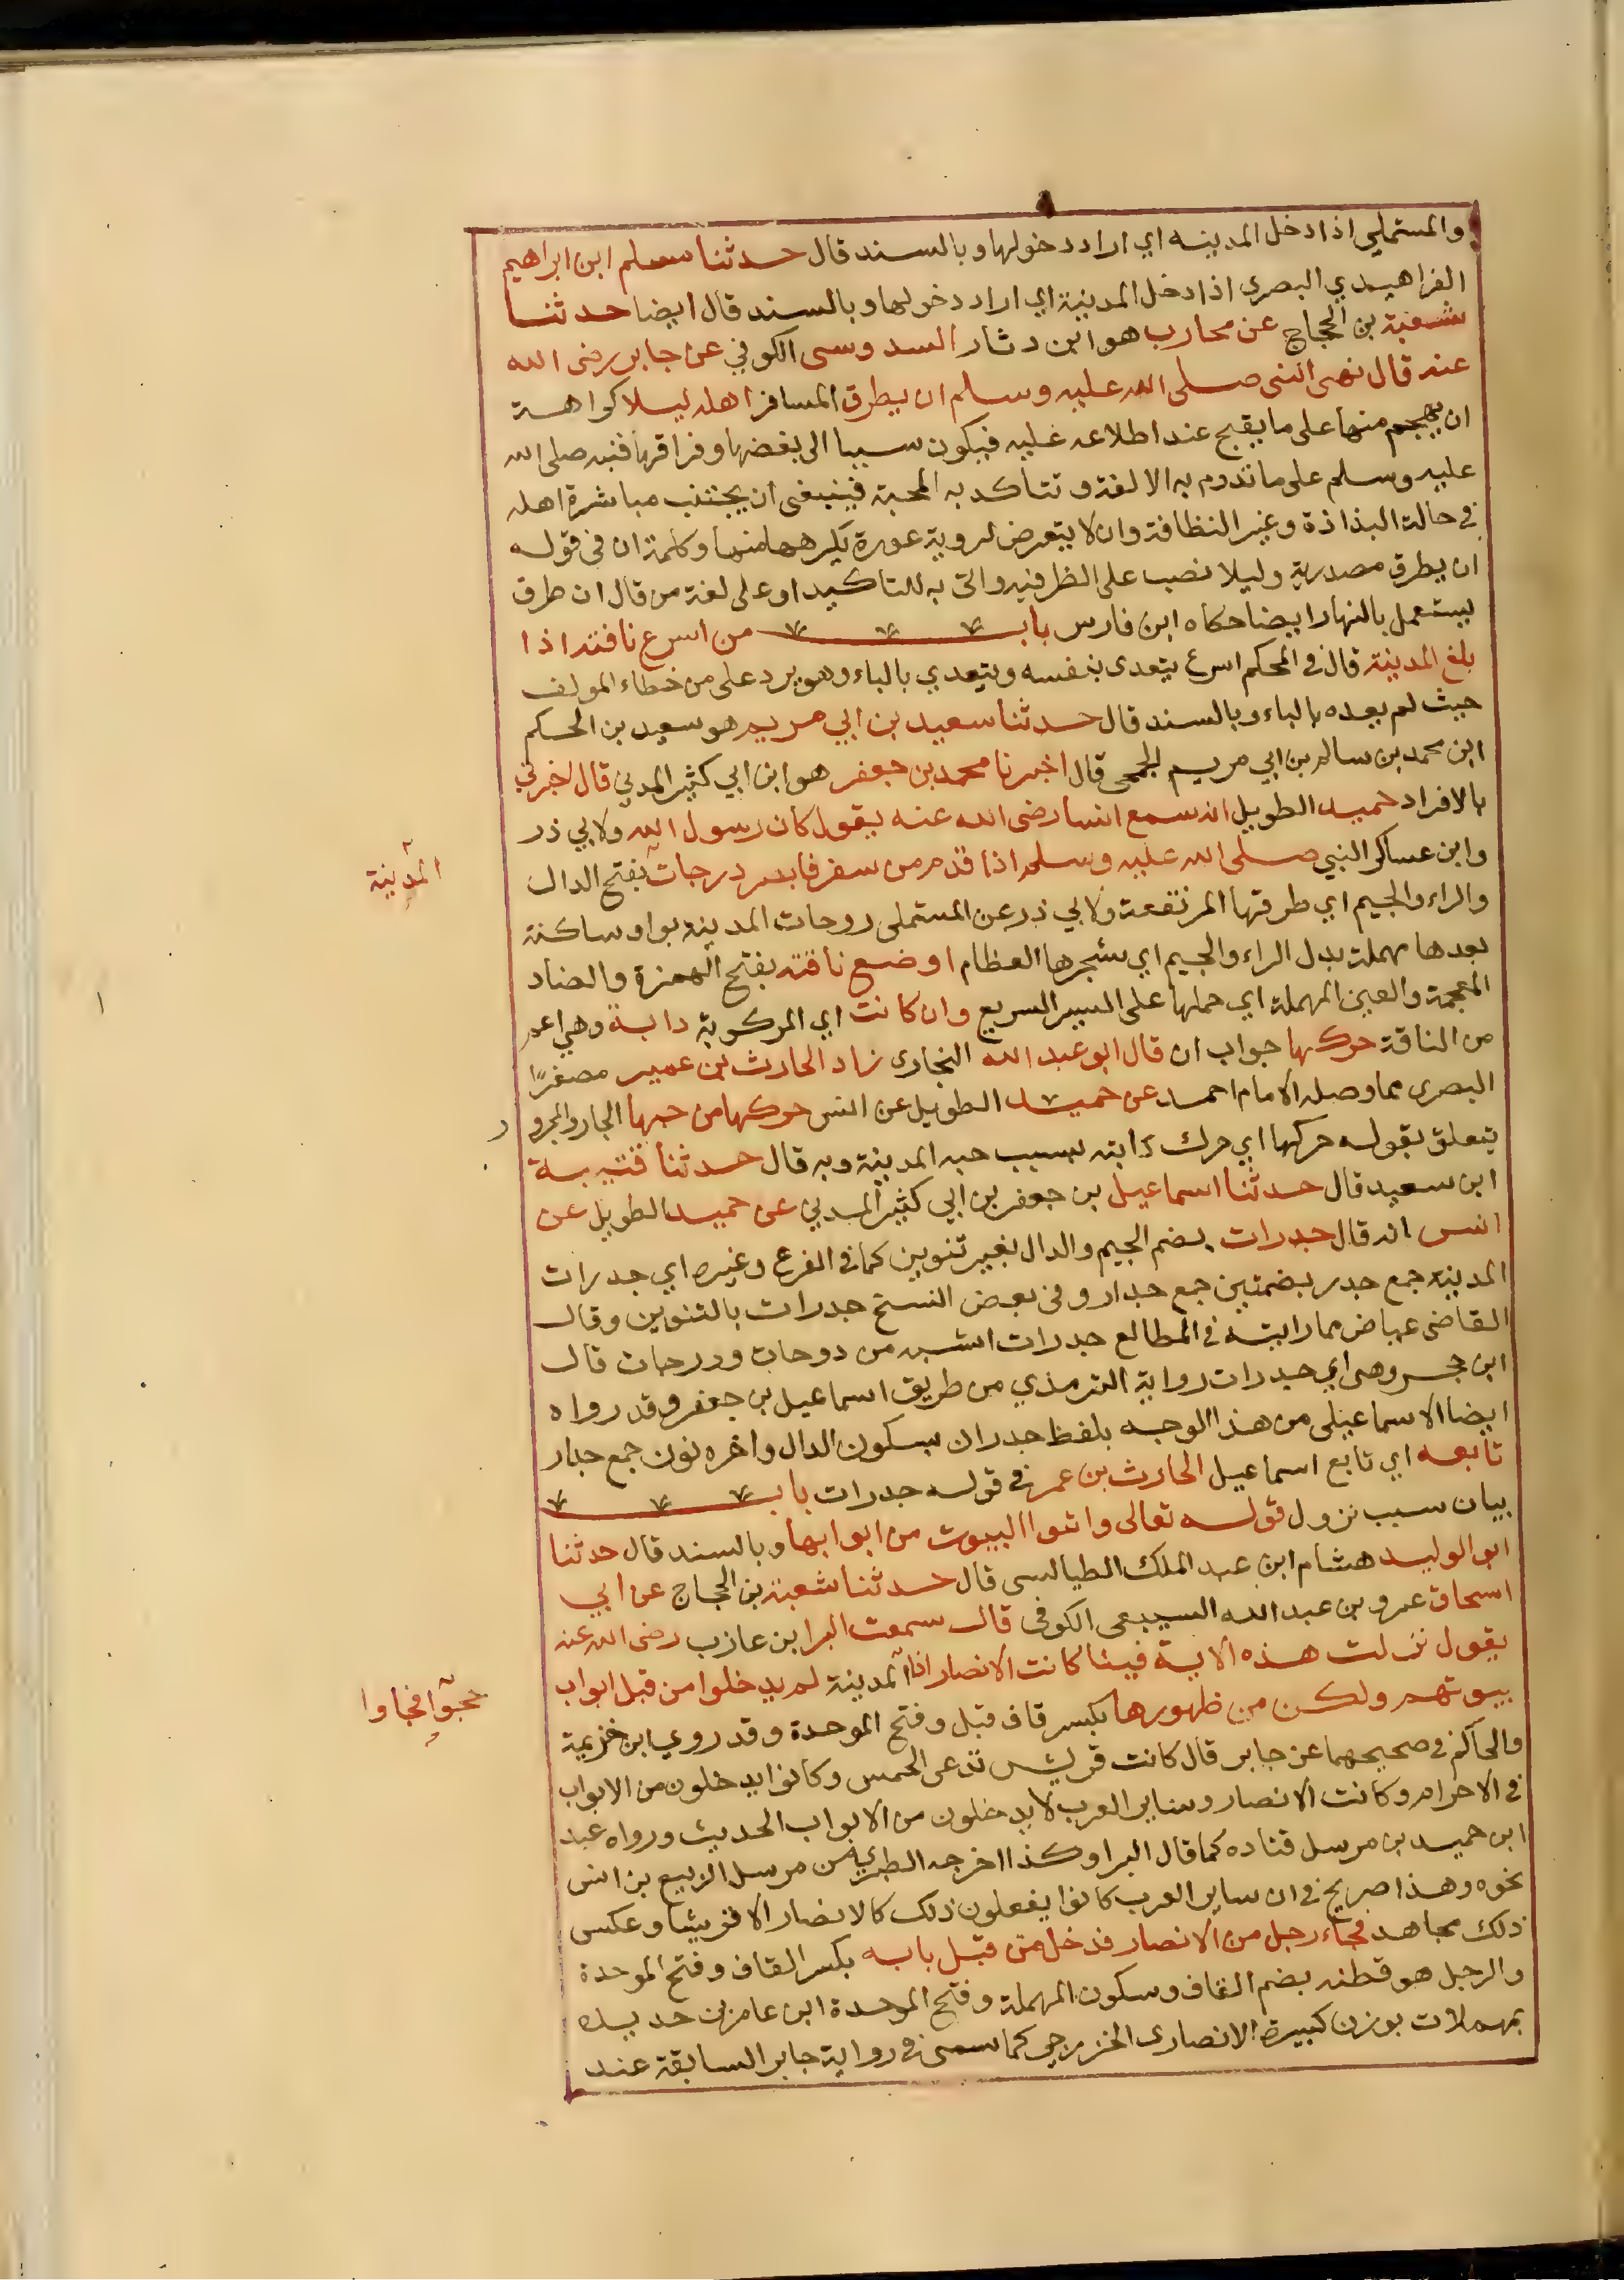 والمستملي اذا دخل المدينه اي اراد دخولها وبالسند قال حدثنا مسلم ابن ابراهيم
الفراهيدي البصرى اذا دخل المدينة اي اراد دخولها وبالسند قال ايضا حدثنا
شعبة بن الحجاج عن محارب هو ابن دثار السدوسى الكوفي عن جابر رضى الله
عنه قال نهى النبى صلى الله عليه وسلم ان يطرق المسافر اهله ليلا كراهة
ان يهجم منها على ما يقبح عند اطلاعه عليه فيكون سببا الى بغضها وفراقها فنبه صلى الله
عليه وسلم على ما تدوم به الالفة وتتاكد به المحبة فينبغى ان يجتنب مباشرة اهله
في حالة البذاذة وغير النظافة وان لا يتعرض لروية عورة يكرهها منها وكلمة ان فى قوله
ان يطرق مصدرية وليلا نصب على الظرفيه واتى به للتاكيد او على لغة من قال ان طرق
يستعمل بالنهار ايضا حكاه ابن فارس باب من اسرع ناقته اذا
بلغ المدينة قال في المحكم اسرع يتعدى بنفسه ويتعدي بالباء وهو يرد على من خطاء المولف
حيث لم يعده بالباء وبالسند قال حدثنا سعيد بن ابي مريم هو سعيد بن الحكم
ابن محمد بن سالم بن ابي مريم الجمحى قال اخبرنا محمد بن جعفر هو ابن ابي كثير المدني قال اخبرني
بالافراد حميد الطويل انه سمع انسا رضى الله عنه يقول كان رسول الله ولابي ذر
وابن عساكر النبي صلى الله عليه وسلم اذا قدم من سفر فابصر درجات بفتح الدال
المدينة
والراء والجيم اي طرقها المرتفعة ولابي ذر عن المستملى روحات المدينه بواو ساكنة
بعدها مهملة بدل الراء والجيم اي شجرها العظام اوضع ناقته بفتح الهمزة والضاد
المعجمة والعين المهملة اي حملها على السير السريع وان كانت اي المركوبة دابة وهي اعم
من الناقة حركها جواب ان قال ابو عبد الله البخارى زاد الحارث بن عمير مصغرًا
البصرى مما وصله الامام احمد عن حميد الطويل عن انس حركها من حبها الجار والمجرو
ر
يتعلق بقوله حركها اي حرك دابته بسبب حبه المدينة وبه قال حدثنا قتيبة
ابن سعيد قال حدثنا اسماعيل بن جعفر بن ابي كثير المدني عن حميد الطويل عن
انس انه قال جدرات بضم الجيم والدال بغير تنوين كما في الفرع وغيره اي جدرات
المدينه جمع جدر بضمتين جمع جدار وفى بعض النسخ جدرات بالتنوين وقال
القاضى عياض مما رايته في المطالع جدرات اشبه من دوحات ودرجات قال
ابن حجر وهى اي جدرات رواية الترمذي من طريق اسماعيل بن جعفر وقد رواه
ايضا الاسماعيلى من هذا الوجه بلفظ جدران بسكون الدال واخره نون جمع جدار
تابعه اي تابع اسماعيل الحارث بن عمر في قوله جدرات باب
بيان سبب نزول قوله تعالى واتوا البيوت من ابوابها وبالسند قال حدثنا
ابو الوليد هشام ابن عبد الملك الطيالسى قال حدثنا شعبة بن الحجاج عن ابي
اسحاق عمرو بن عبد الله السبيعى الكوفى قال سمعت البرا ابن عازب رضى الله عنه
يقول نزلت هذه الاية فينا كانت الانصار اذا المدينة لم يدخلوا من قبل ابواب
حجوا فجاوا
بيوتهم ولكن من ظهورها بكسر قاف قبل وفتح الموحدة وقد روي ابن خزيمة
والحاكم في صحيحهما عن جابر قال كانت قريش تدعى الحمس وكانوا يدخلون من الابواب
في الاحرام وكانت الانصار وساير العرب لا يدخلون من الابواب الحديث ورواه عبد
ابن حميد بن مرسل قتاده كما قال البرا وكذا اخرجه الطبري من مرسل الربيع بن انس
نحوه وهذا صريح في ان ساير العرب كانوا يفعلون ذلك كالانصار الا قريشا وعكس
ذلك مجاهد فجاء رجل من الانصار فدخل من قبل بابه بكسر القاف وفتح الموحدة
والرجل هو قطنه بضم القاف وسكون المهملة وفتح الموحدة ابن عامر بن حديده
بمهملات بوزن كبيرة الانصارى الخزرجي كما سمى في رواية جابر السابقة عند